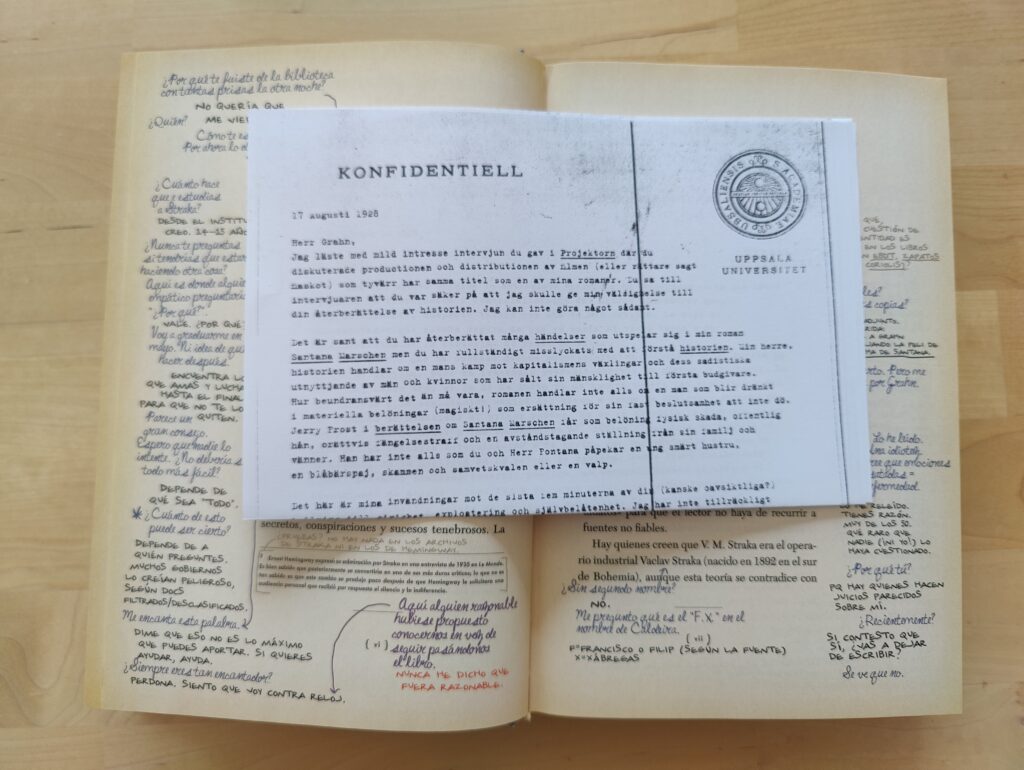 ¿Por qué te fuiste de la biblioteca
con tantas prisas la otra noche?
NO QUERÍA QUE
¿Quién? ME
Cómo te
Por ahora lo
¿Cuánto hace
que estudias
a Straka?
DESDE EL
CREO. 14-15
¿Nunca te preguntas
si tendrías que estar
haciendo otra cosa?
Aquí es donde
empático
"¿Por qué?"
VALE. ¿POR QUÉ
Voy a graduarme en
mayo. Ni idea de qué
hacer después.
ENCUENTRA LO
QUE AMAS Y LUCHA
HASTA EL FINAL
PARA QUE NO TE LO
QUITEN.
Parece un
gran consejo.
Espero que nadie lo
intente. ¿No debería
todo más fácil?
DEPENDE DE
QUÉ SEA "TODO".
¿Cuánto de esto
puede ser cierto?
DEPENDE DE A
QUIÉN PREGUNTES.
MUCHOS GOBIERNOS
LO CREÍAN PELIGROSO,
SEGÚN DOCS
FILTRADOS/DESCLASIFICADOS.
Me encanta esta palabra.
DIME QUE ESO NO ES LO MÁXIMO
QUE PUEDES APORTAR. SI QUIERES
AYUDAR, AYUDA.
¿Siempre eres tan encantador?
PERDONA. SIENTO QUE VOY CONTRA RELOJ.
KONFIDENTIELL
17 augusti 1928
UBSALIENSIS S ACADEMIAE
UPPSALA
UNIVERSITET
Herr Grahn,
Jag läste med mild intresse intervjun du gav i Projektorn där du
diskuterade productionen och distributionen av filmen (eller rättare sagt
maskot) som tyvärr har samma titel som en av mina romaner. Du sa till
intervjuaren att du var säker på att jag skulle ge min välsignelse till
din återberättelse av historien. Jag kan inte göra något sådant.
Det är sant att du har återberättat många händelser som utspelar sig i min roman
Santana Marschen men du har fullständigt misslyckats med att förstå historien. Min herre,
historien handlar om en mans kamp mot kapitalismens växlingar och dess sadistiska
utnyttjande av män och kvinnor som har sålt sin mänsklighet till första budgivare.
Hur beundransvärt det än må vara, romanen handlar inte alls om en man som blir dränkt
i materiella belöningar (magiskt!) som ersättning för sin fast beslutsamhet att inte dö.
Jerry Frost i berättelsen om Santana Marschen får som belöning fysisk skada, offentlig
hån, orättvis fängelsestraff och en avståndstagande ställning från sin familj och
vänner. Han har inte alls som du och Herr Fontana påpekar en ung smärt hustru,
en blåbärspaj, skammen och samvetskvalen eller en valp.
Det här är mina invändningar mot de sista fem minuterna av din (kanske oavsiktliga?)
exploatering och självbelåtenhet. Jag har inte tillräckligt
secretos, conspiraciones y sucesos tenebrosos. La
¿PRUEBAS? NO HAY NADA EN LOS ARCHIVOS
DE STRAKA NI EN LOS DE HEMINGWAY.
Ernest Hemingway expresó su admiración por Straka en una entrevista de 1935 en Le Monde.
Es bien sabido que posteriormente se convertiría en uno de sus más duros críticos; lo que no es
tan sabido es que este cambio se produjo poco después de que Hemingway le solicitara una
audiencia personal que recibió por respuesta el silencio y la indiferencia.
Aquí alguien razonable
hubiese propuesto
conocernos en vez de
seguir pasándonos
el libro.
( vi )
NUNCA HE DICHO QUE
FUERA RAZONABLE.
QUE,
CUESTIÓN DE
EN LOS LIBROS
ZAPATOS
copias?
A GRAHN
DE SANTANA.
Pero me
por Grahn.
Lo he leído.
que emociones
RELEÍDO.
TIENES RAZÓN.
MUY DE LOS 30.
QUE RARO QUE
NADIE (¡NI YO!) LO
HAYA CUESTIONADO.
¿Por qué tú?
PQ HAY QUIENES HACEN
JUICIOS PARECIDOS
SOBRE MÍ.
¿Recientemente?
SI CONTESTO QUE
SÍ, ¿VAS A DEJAR
DE ESCRIBIR?
Se ve que no.
para que el lector no haya de recurrir a
fuentes no fiables.
Hay quienes creen que V. M. Straka era el opera-
rio industrial Vaclav Straka (nacido en 1892 en el sur
de Bohemia), aunque esta teoría se contradice con
¿Sin segundo nombre?
NO.
Me pregunto qué es el "F.X." en el
nombre de Caldeira.
( vii )
F=FRANCISCO O FILIP (SEGÚN LA FUENTE)
X=XABREGAS